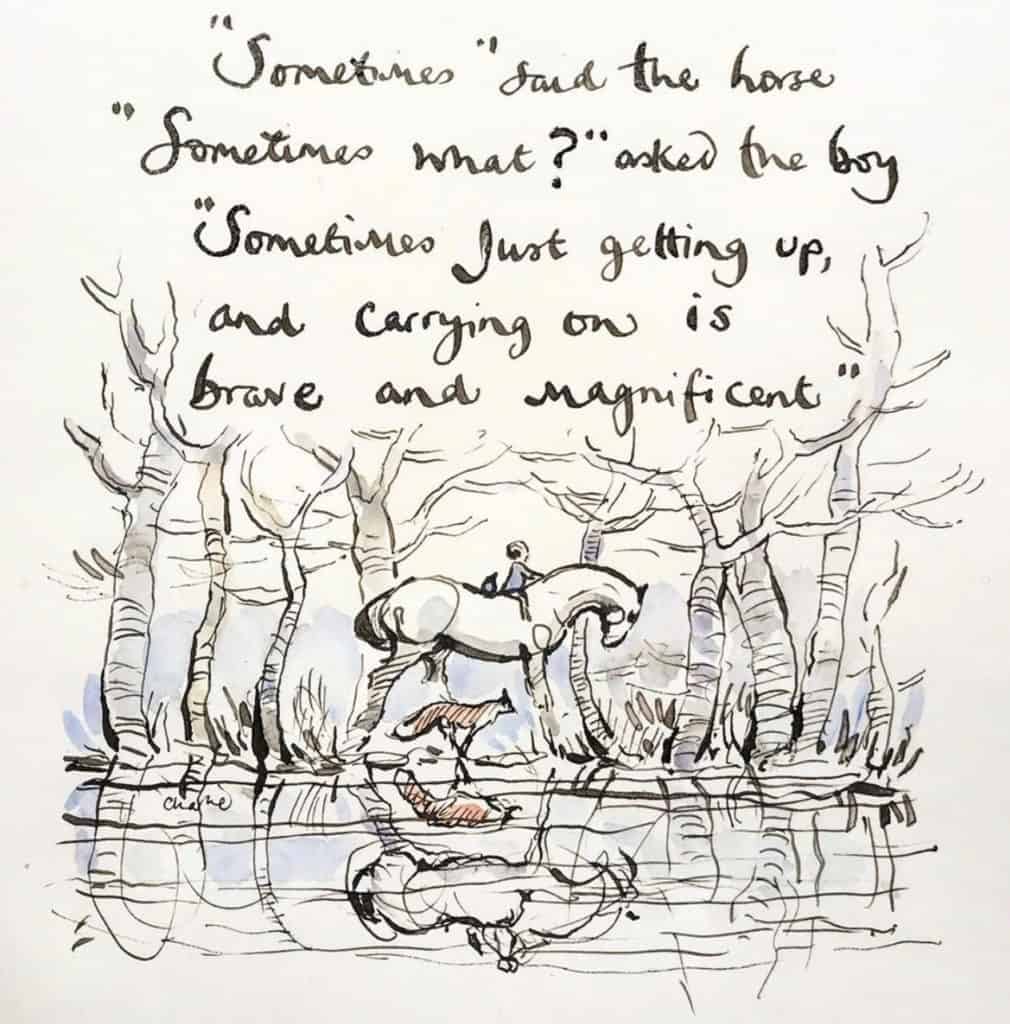 "Sometimes" said the horse
"Sometimes what?" asked the boy
"Sometimes Just getting up,
and carrying on is
brave and magnificent"
Charlie